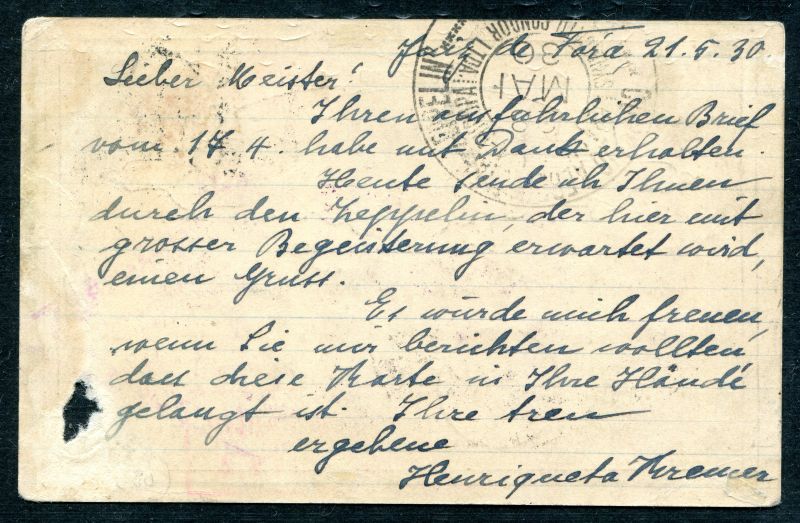 Juiz de Fóra 21.5.30.
Lieber Meister!
Ihren ausführlichen Brief
vom 17 4. habe mit Dank erhalten.
Heute sende ich Ihnen
durch den Zeppelin, der hier mit
grosser Begeisterung erwartet wird,
einen Gruss.
Es würde mich freuen,
wenn Sie mir berichten wollten
dass diese Karte in Ihre Hände
gelangt ist. Ihre treu
ergebene
Henriqueta Kremer
CONDOR LTDA
MAI
30